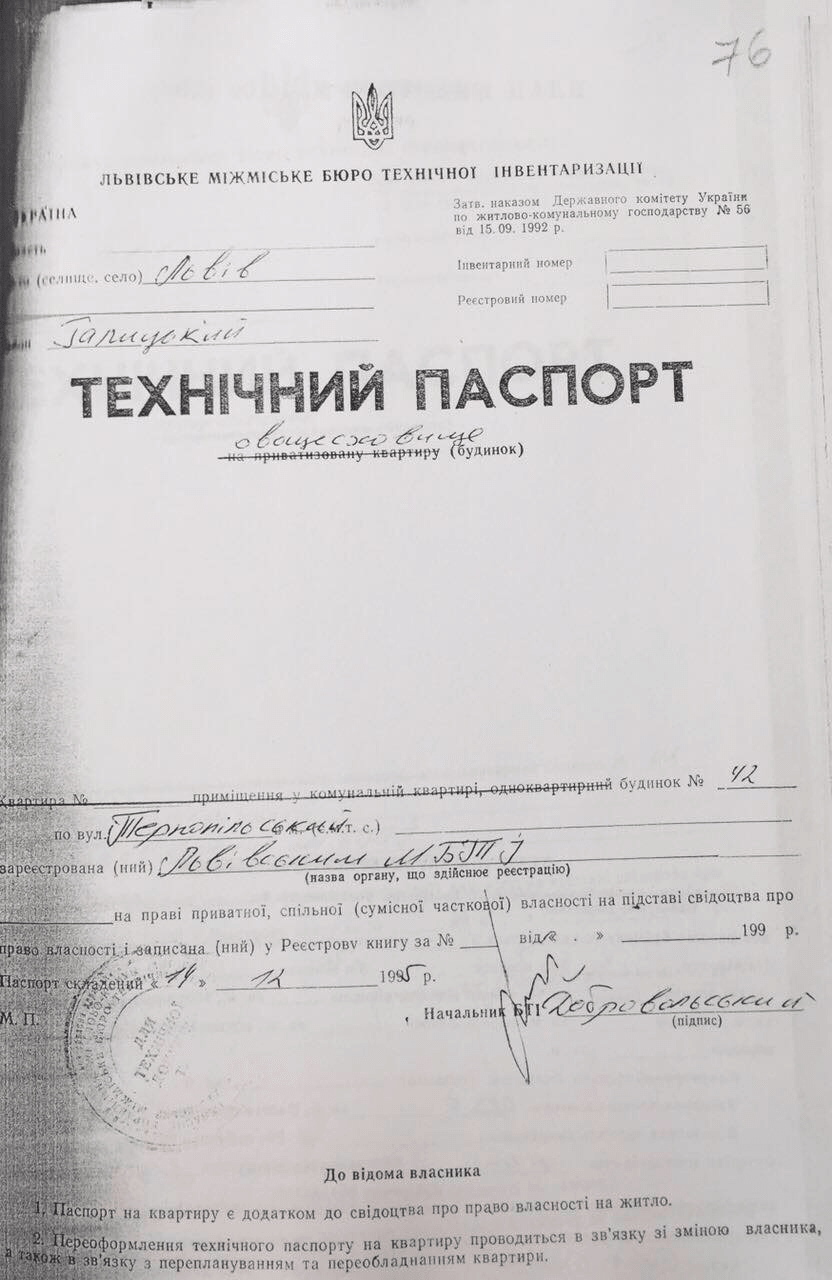 76
ЛЬВІВСЬКЕ МІЖМІСЬКЕ БЮРО ТЕХНІЧНОЇ ІНВЕНТАРИЗАЦІЇ
УКРАЇНА
Затв. наказом Державного комітету України
по житлово-комунальному господарству № 56
від 15.09. 1992 р.
(селище, село) Львів
Інвентарний номер
Реєстровий номер
Галицький
ТЕХНІЧНИЙ ПАСПОРТ
овочесховище
на приватизовану квартиру (будинок)
Квартира № приміщення у комунальній квартирі, одноквартирний будинок № 42
по вул. Тернопільська т. с.)
зареєстрована (ний) Львівським МБТІ
(назва органу, що здійснює реєстрацію)
на праві приватної, спільної (сумісної часткової) власності на підставі свідоцтва про
право власності і записана (ний) у Реєстрову книгу за № від « . » 199 р.
Паспорт складений « 14 » 12 1995 р.
М. П.
Начальник БТІ Добровольський
(підпис)
ДЛЯ
ТЕХНІЧНОЇ
До відома власника
1. Паспорт на квартиру є додатком до свідоцтва про право власності на житло.
2. Переоформлення технічного паспорту на квартиру проводиться в зв'язку зі зміною власника,
а також в зв'язку з переплануванням та переобладнанням квартири.